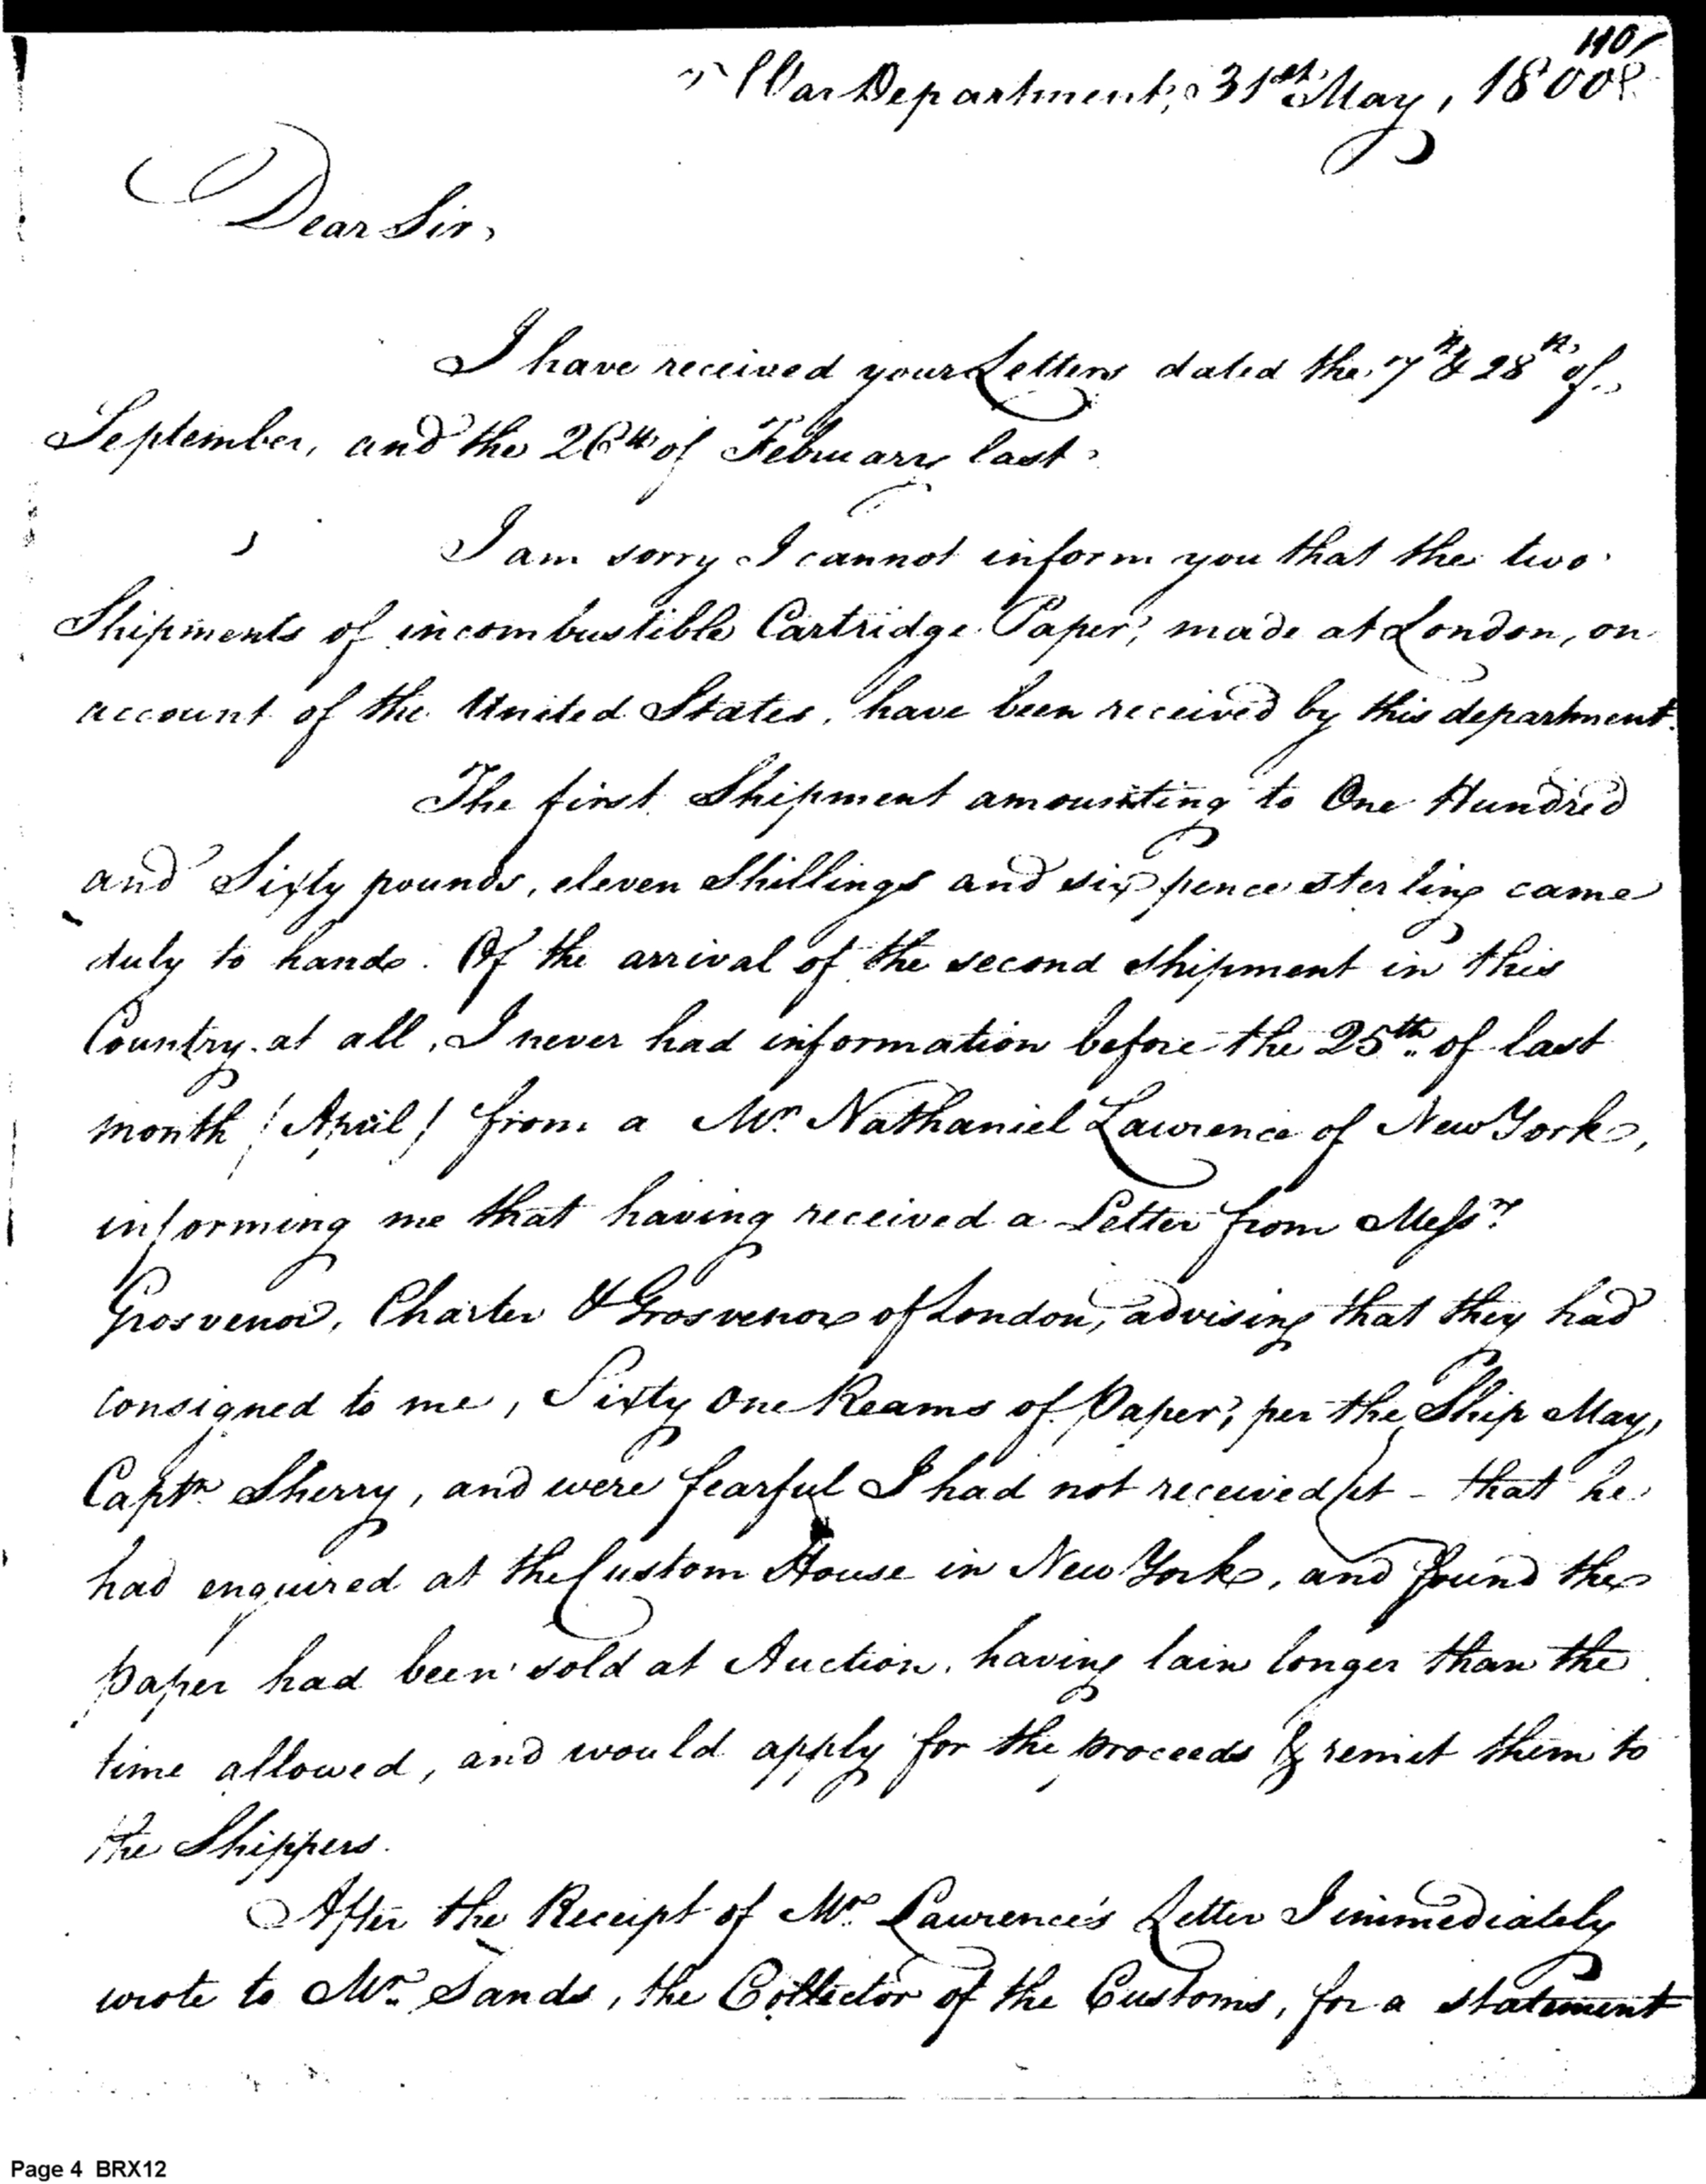 110
War Department, 31st May, 1800.
Dear Sir,
I have received your Letters dated the 7th & 28th of
September, and the 26th of February last.
I am sorry I cannot inform you that the two
Shipments of incombustible Cartridge Paper, made at London, on
account of the United States, have been received by this department.
The first Shipment amounting to One Hundred
and Sixty pounds, eleven Shillings and six pence sterling came
duly to hand. Of the arrival of the second shipment in this
Country at all, I never had information before the 25th of last
month /April/ from a Mr. Nathaniel Lawrence of New York,
informing me that having received a Letter from Messrs.
Grosvenor, Charter & Grosvenor of London, advising that they had
consigned to me, Sixty One Reams of Paper, per the Ship May,
Captn. Sherry, and were fearful I had not received it - that he
had enquired at the Custom House in New York, and found the
paper had been sold at Auction, having lain longer than the
time allowed, and would apply for the proceeds & remit them to
the Shippers.
After the Receipt of Mr. Lawrence's Letter I immediately
wrote to Mr. Sands, the Collector of the Customs, for a statement
Page 4 BRX12